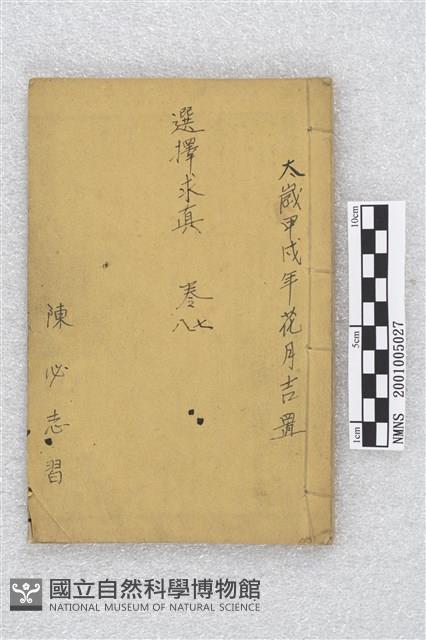 太歲甲戌年花月吉置
選擇求真 卷七八
陳必志習
10cm
5cm
1cm
NMNS 2001005027
國立自然科學博物館
NATIONAL MUSEUM OF NATURAL SCIENCE